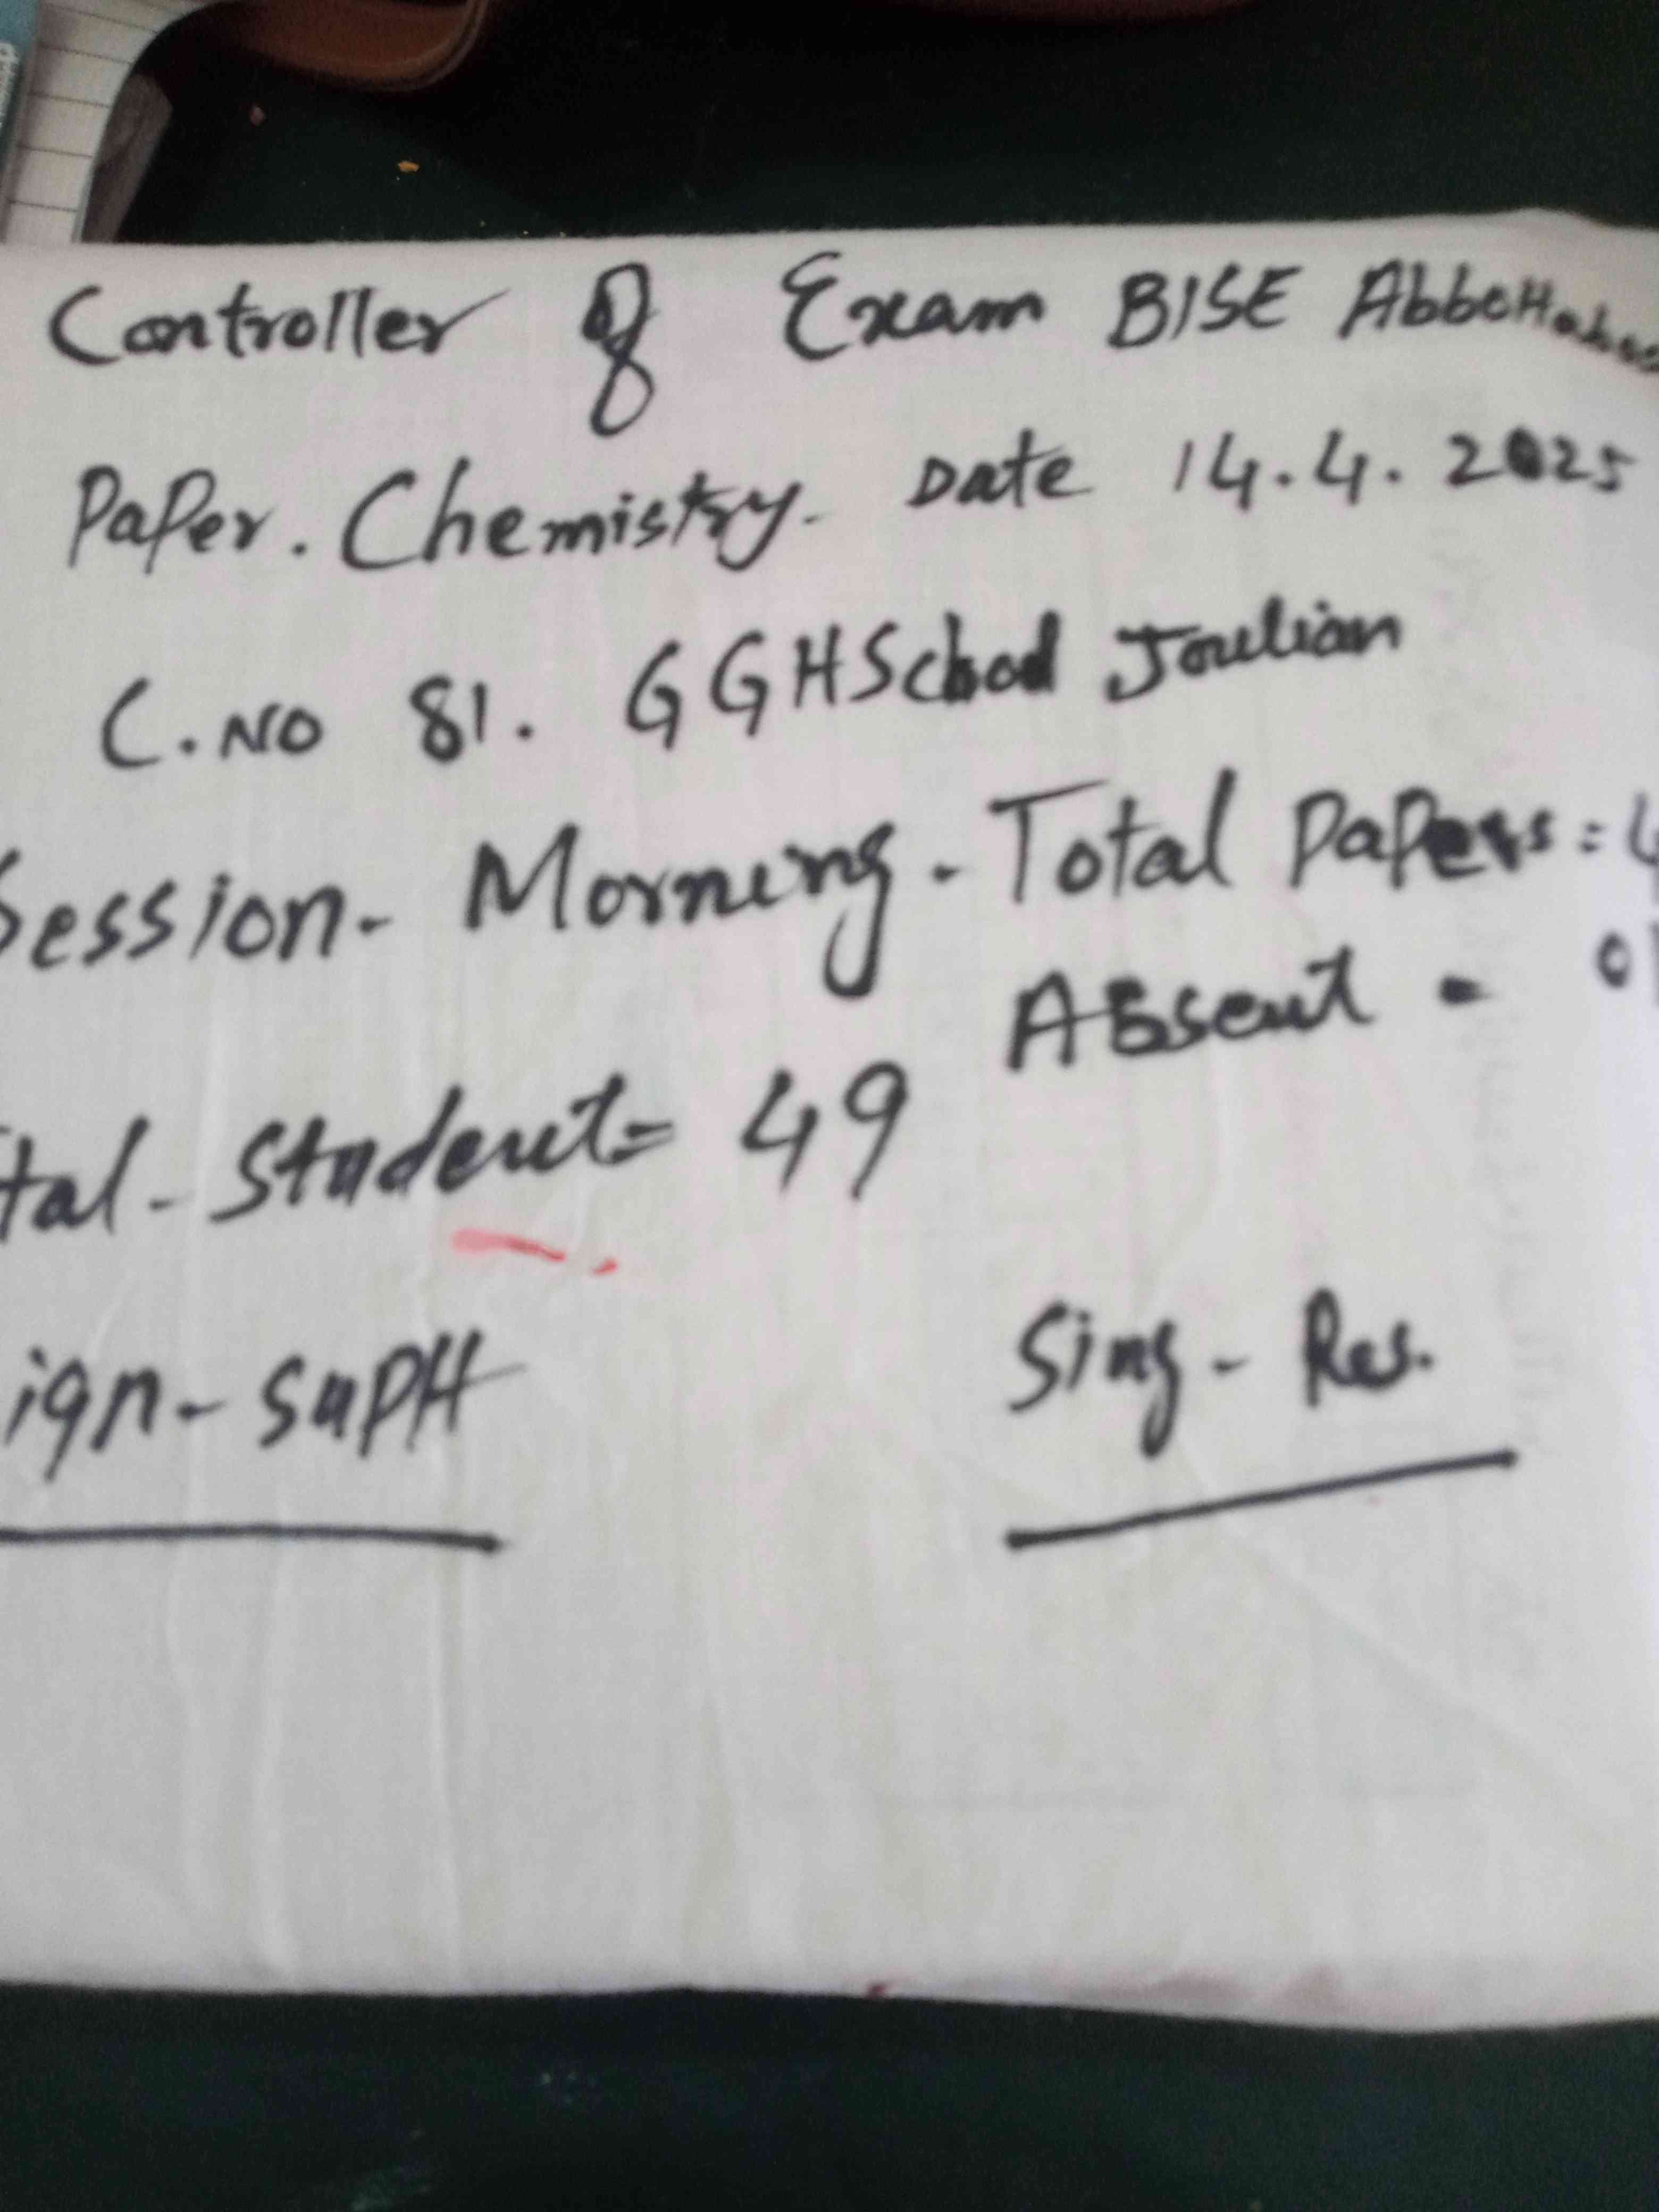 Controller of Exam BISE Abbottabad
Paper. Chemistry. Date 14.4.2025
C.No 81. GGHSchool Joulian
Session - Morning - Total Papers = 4
Absent - 01
tal - Student = 49
ign - SupH
Sing - Res.